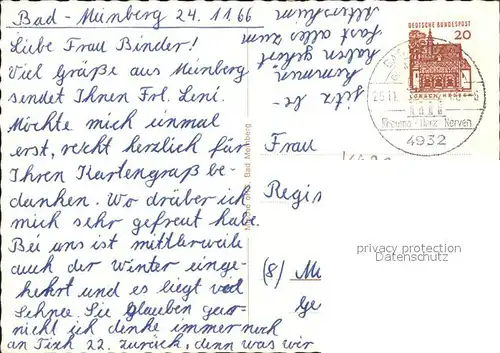 Bad-Meinberg 24.11.66
Liebe Frau Binder!
Viel Grüße aus Meinberg
sendet Ihnen Frl. Leni.
Möchte mich einmal
erst, recht herzlich für
Ihren Kartengruß be-
danken. Wo drüber ich
mich sehr gefreut habe.
Bei uns ist mittlerweile
auch der Winter einge-
kehrt und es liegt viel
Schnee. Sie glauben gar
nicht ich denke immer noch
an Tisch 22. zurück, denn was wir
jetz be-
kommen
haben gehört
fast alles zum
Bad Meinberg
DEUTSCHE BUNDESPOST
20
Rheuma - Herz - Nerven
4932
Frau
Regis
(8) Mü
privacy protection
Datenschutz